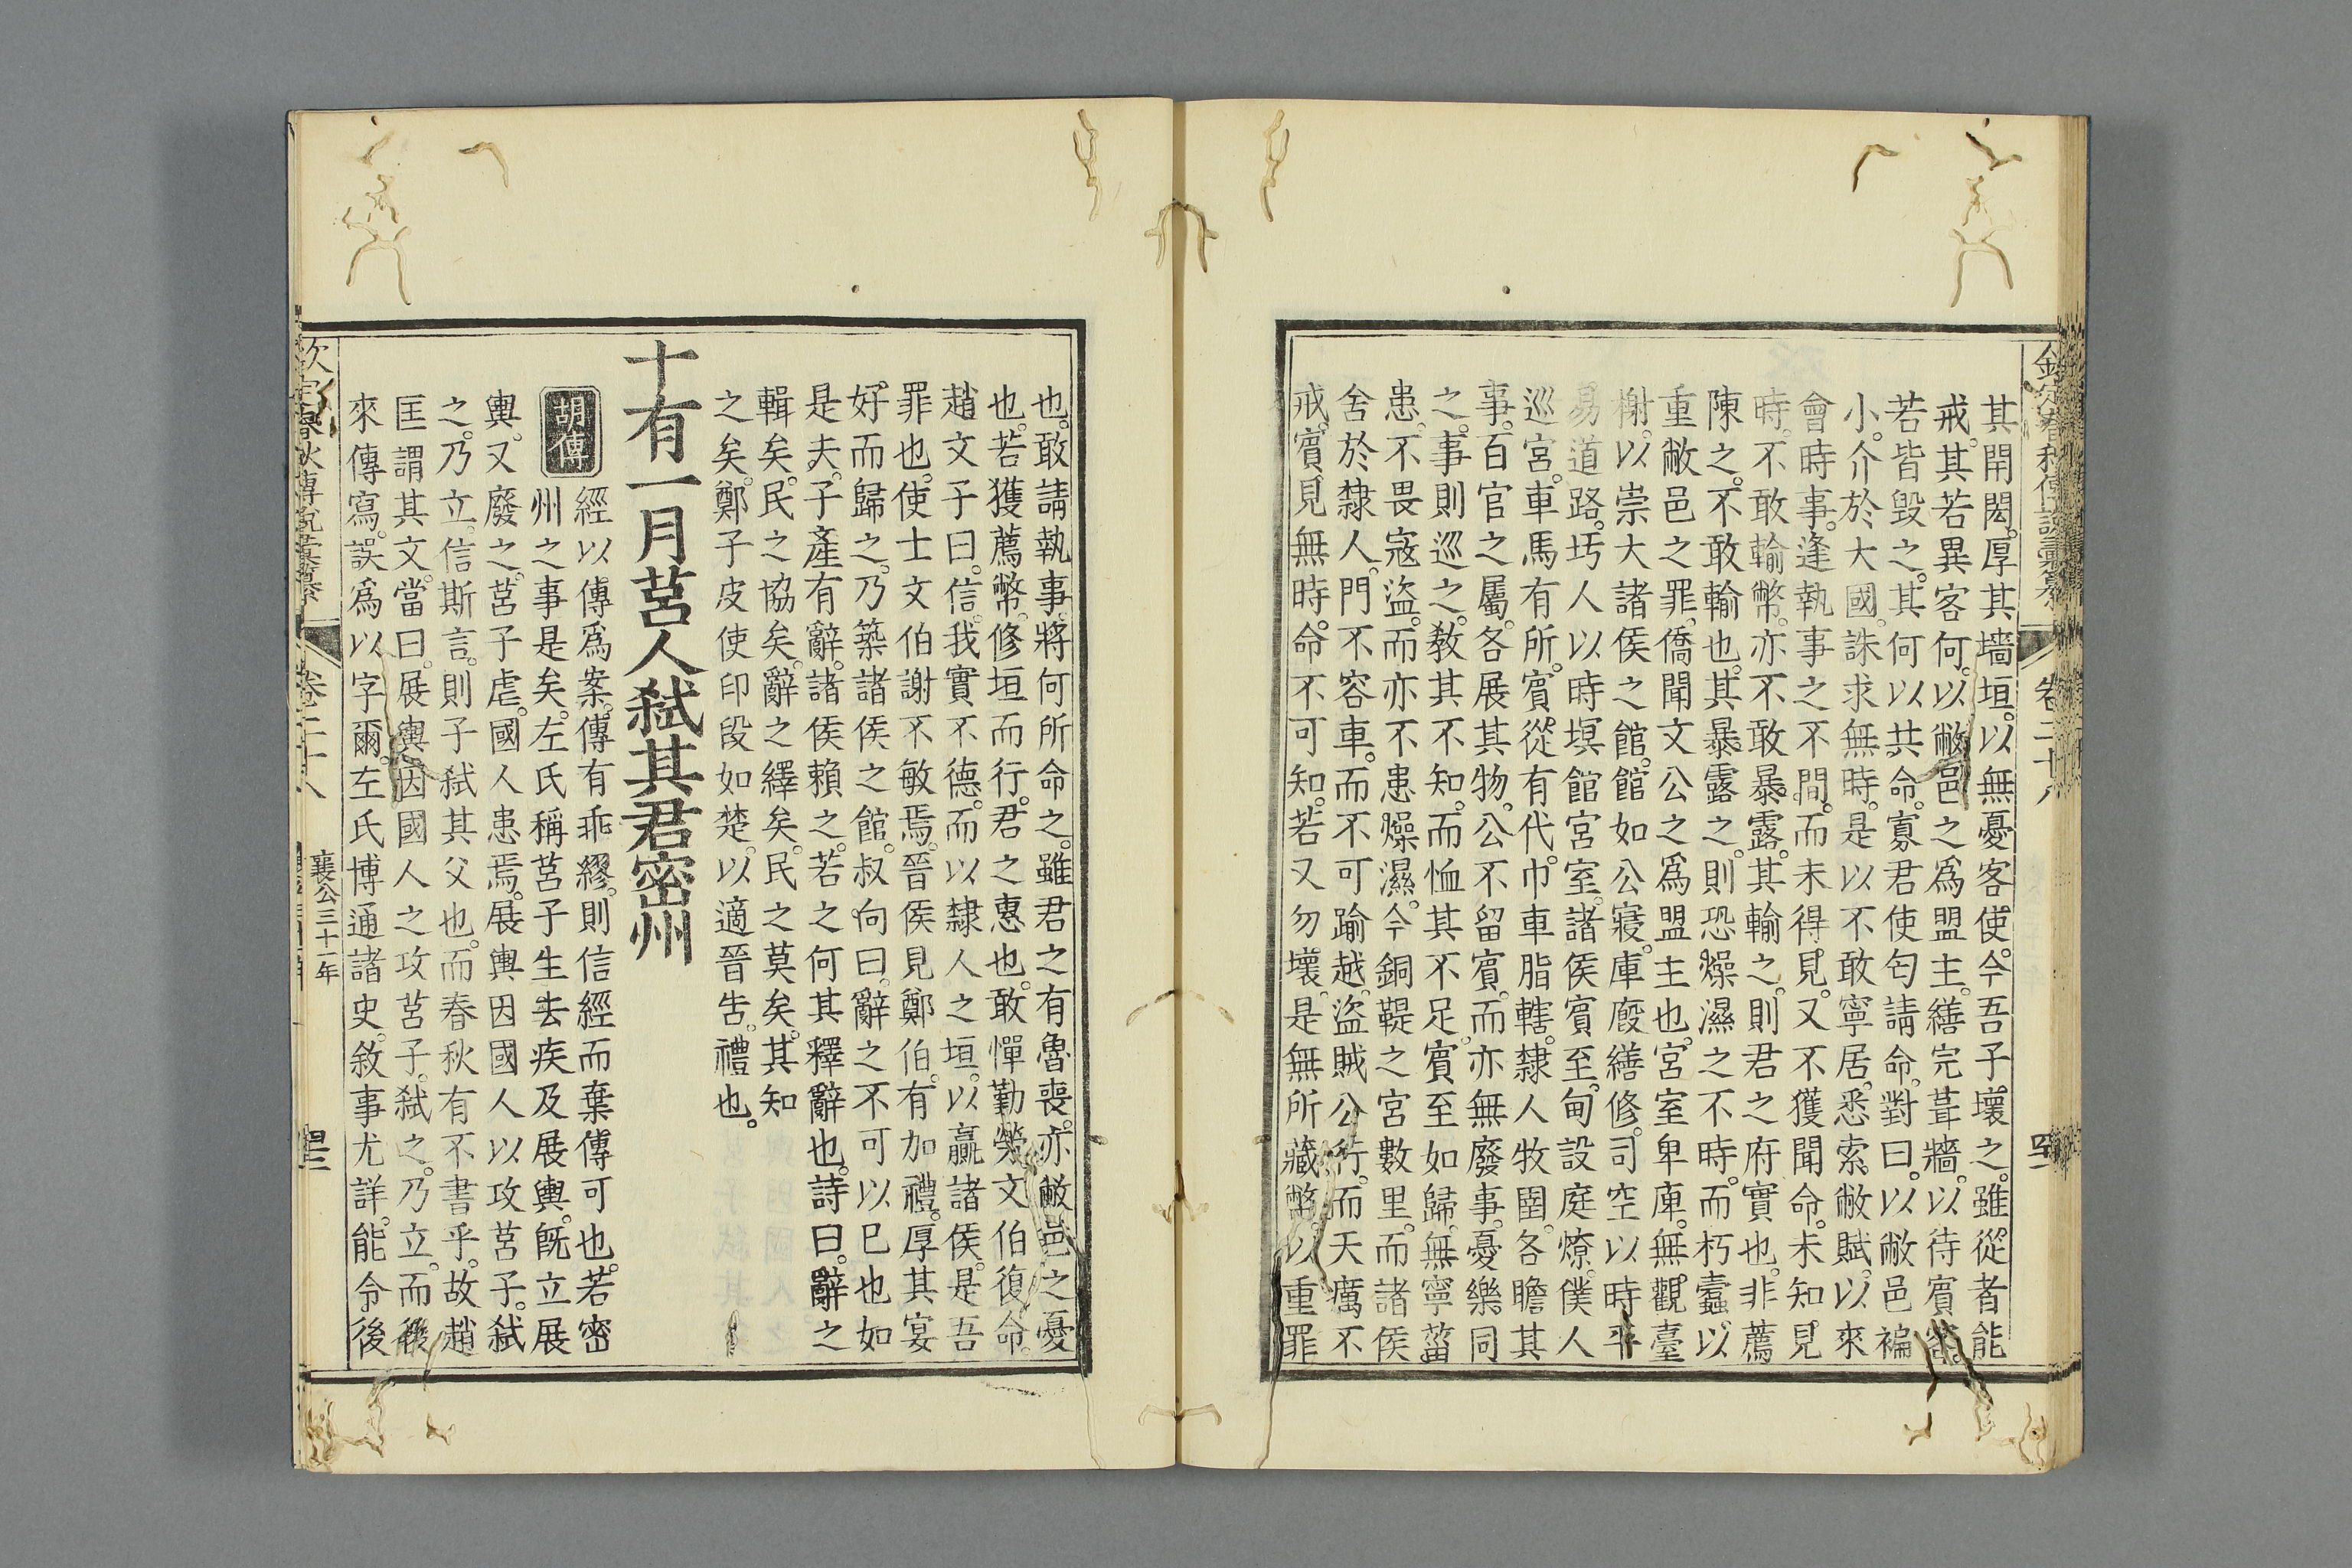 欽定春秋傳說彙纂 卷二十八
其閈閎。厚其墻垣。以無憂客使。今吾子壞之。雖從者能
戒。其若異客何。以敝邑之爲盟主。繕完葺牆。以待賓客。
若皆毀之。其何以共命。寡君使匄請命。對曰。以敝邑褊
小。介於大國。誅求無時。是以不敢寧居。悉索敝賦。以來
會時事。逢執事之不閒。而未得見。又不獲聞命。未知見
時。不敢輸幣。亦不敢暴露。其輸之。則君之府實也。非薦
陳之。不敢輸也。其暴露之。則恐燥濕之不時。而朽蠹。以
重敝邑之罪。僑聞文公之爲盟主也。宮室卑庳。無觀臺
榭。以崇大諸侯之館。館如公寢。庫廄繕修。司空以時平
易道路。圬人以時塓館宮室。諸侯賓至。甸設庭燎。僕人
巡宮。車馬有所。賓從有代。巾車脂轄。隸人牧圉。各瞻其
事。百官之屬。各展其物。公不留賓。而亦無廢事。憂樂同
之。事則巡之。教其不知。而恤其不足。賓至如歸。無寧菑
患。不畏寇盜。而亦不患燥濕。今銅鞮之宮數里。而諸侯
舍於隸人。門不容車。而不可踰越。盜賊公行。而天厲不
戒。賓見無時。命不可知。若又勿壞。是無所藏幣。以重罪
也。敢請執事。將何所命之。雖君之有魯喪。亦敝邑之憂
也。若獲薦幣。修垣而行。君之惠也。敢憚勤勞。文伯復命。
趙文子曰。信。我實不德。而以隸人之垣。以贏諸侯。是吾
罪也。使士文伯謝不敏焉。晉侯見鄭伯。有加禮。厚其宴
好。而歸之。乃築諸侯之館。叔向曰。辭之不可以已也如
是夫。子產有辭。諸侯賴之。若之何其釋辭也。詩曰。辭之
輯矣。民之協矣。辭之繹矣。民之莫矣。其知
之矣。鄭子皮使印段如楚。以適晉告。禮也。
十有一月莒人弒其君密州
胡傳
經以傳爲案。傳有乖繆。則信經而棄傳可也。若密
州之事是矣。左氏稱莒子生去疾及展輿。既立展
輿。又廢之。莒子虐。國人患焉。展輿因國人以攻莒子。弒
之。乃立。信斯言。則子弒其父也。而春秋有不書乎。故趙
匡謂其文。當曰。展輿因國人之攻莒子。弒之。乃立。而後
來傳寫。誤爲以字爾。左氏博通諸史。敘事尤詳。能令後
欽定春秋傳說彙纂 卷二十八 襄公三十一年